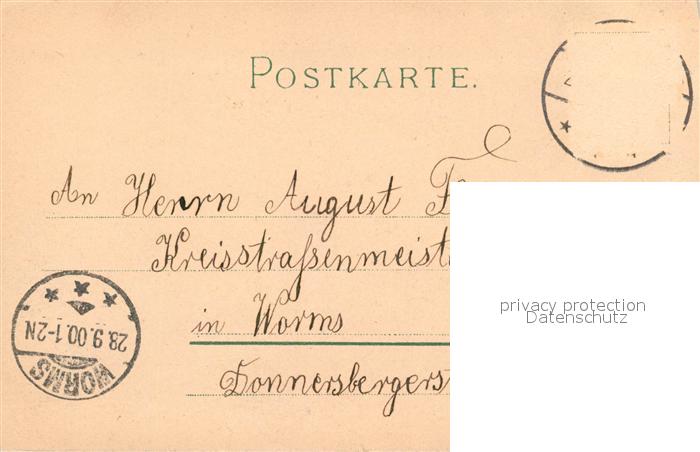 POSTKARTE.
An Herrn August
Kreisstraßenmeist
in Worms
Donnersbergers
WORMS
28.9.00.1-2N
privacy protection
Datenschutz